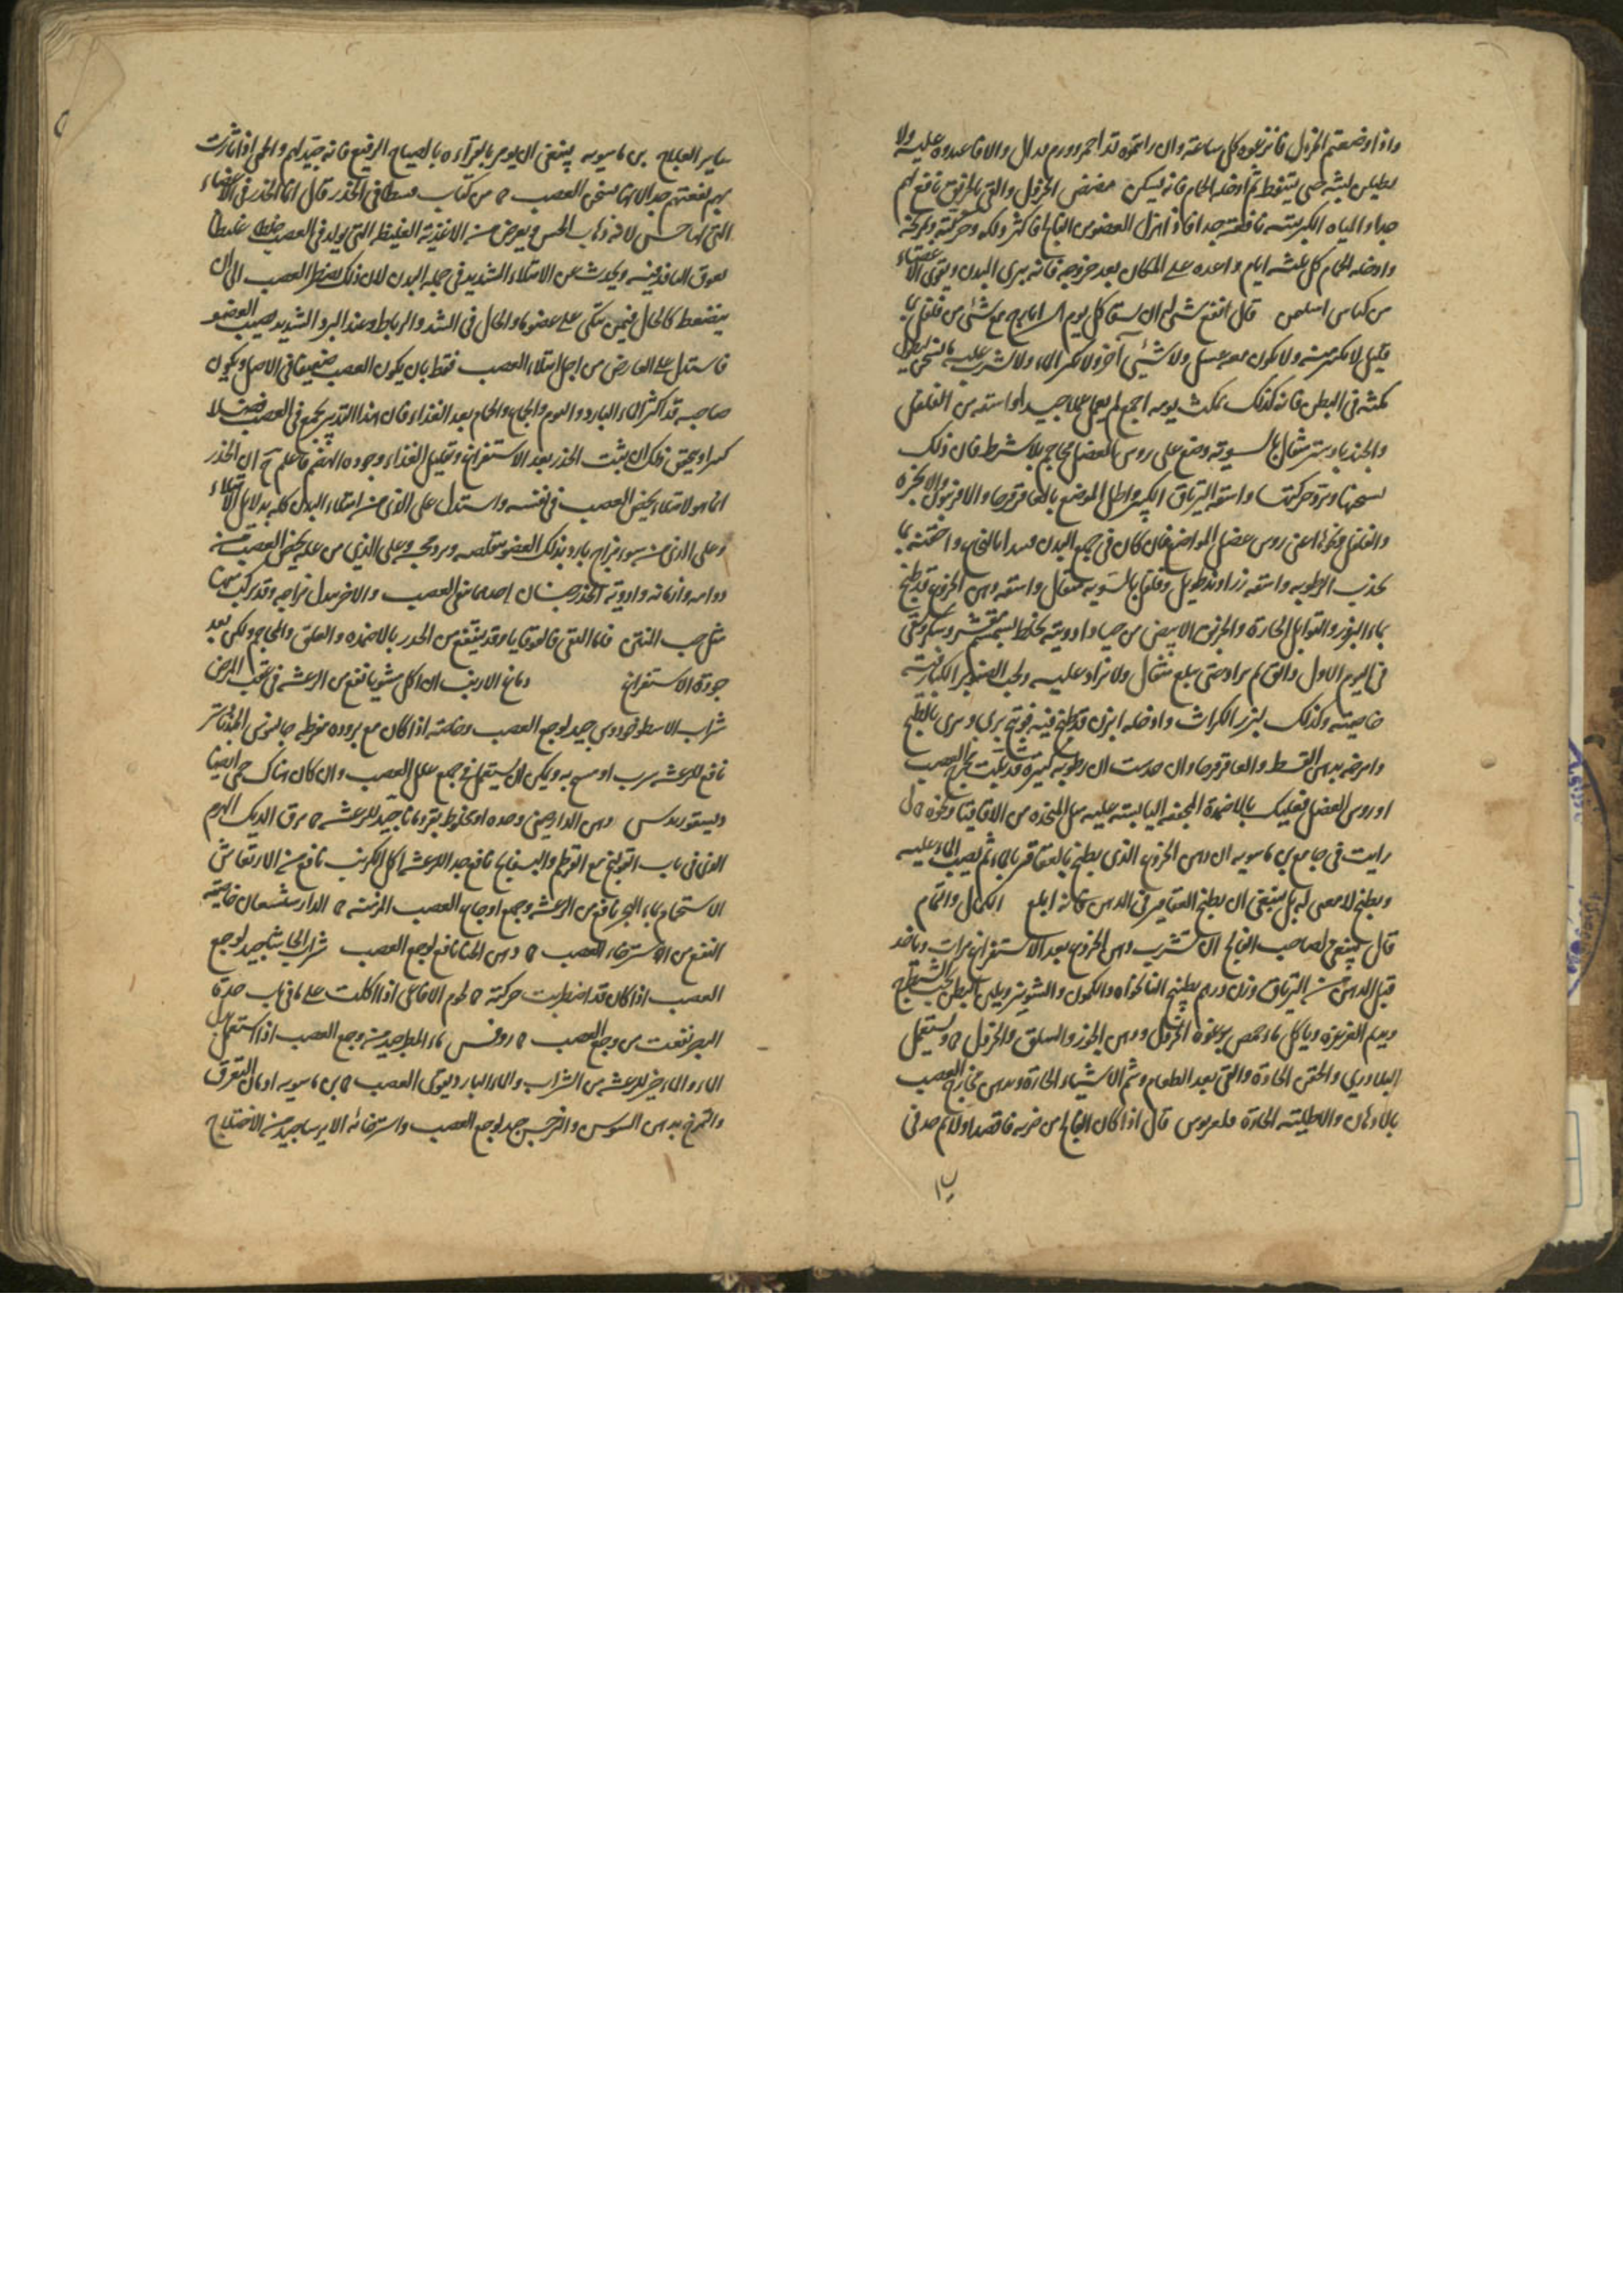 واذا وضعتم الخردل فانزعوه كل ساعة وان رايتموه قد احمر وورم فدال والا فاعيدوه عليه ولا
يطيلن لبثه حتى يتنفط ثم ادخله الحمام فانه يسكن مضض الخردل والقي بالخربق نافع لهم
جدا والمياه الكبريتية نافعة جدا فاذا هزل العضو من الفالج فاكثر دلكه وحركته وتمريخه
وادخله الحمام كل ثلثه ايام واعده على المكان بعد خروجه فانه يبرى البدن ويقوى الاعضاء
من كناس قال انفع شئ له ان يسقا كل يوم ايارج مع شئ من فلفل
قليل لا يكثر منه ولا يكون معه عسل ولا شئ آخر ولا يكثر الماء ولا يشرب عليه ماء سخن ليطول
مكثه في البطن فانه كذلك يمكث يومه اجمع ثم يعمل عملا جيدا واسقه من الفلفل
والجندبادستر مثقال بالسوية وضع على روس العضل محاجم بلا شرط فان ذلك
يسخنها وحركتها واسقه الترياق الكبير واطل الموضع بالعاقرقرحا والافربيون والانجرة
والفلفل ونحوها اعنى روس عضل المواضع فان كان في جميع البدن فبدا بالنخاع واحقنه بما
يجذب الرطوبه واسقه زراوند طويل وفلفل بالسوية مثقال واسقه دهن الخروع قد طبخ
بماء البزور والتوابل الحارة والخربق الابيض من جياد ادويته يخلط بسمسم مقشر وسكر ويسقى
في اليوم الاول دانق ثم يزاد حتى يبلغ مثقال ولا يزاد عليه ولحب الصنوبر الكبار فيه
خاصية وكذلك لبزر الكراث وادخله ابزن قد طبخ فيه فوتنج بري وبرى بالطبخ
وامرخه بدهن القسط والعاقرقرحا وان حدست ان رطوبه كثيرة قد بلت مخرج العصب
او روس العضل فعليك بالاضمدة المجففه اليابسة عليه مثل المتخذة من الاقاقيا ونحوه
رايت في جامع بن ماسويه ان دهن الخروع الذي يطبخ بالعقاقير بماء ثم يصب الماء عليه
ويطبخ لا معنى له بل ينبغى ان يطبخ العقاقير في الدهن فانه ابلغ الكمال والتمام
قال ينبغى لصاحب الفالج ان يشرب دهن الخروع بعد الاستفراغ مرات وياخذ
قبل الدهن من الترياق وزن درهم بطبيخ النانخواه والكمون والشونيز ويلين البطن بحب الشيطرج
ويديم الغرغرة وياكل ماء حمص برغوة الخردل ودهن الجوز والسلق والخردل ويستعمل
البلادري والحقن الحادة والقي بعد الطعام وشم الاشياء الحارة ودهن مخارج العصب
بالادهان والاطلية الحارة قال اذا كان الفالج من ضربه فافصد اولا ثم خذ في
ساير العلاج بن ماسويه ينبغى ان يومر بالقرآءه بالصياح الرفيع فانه جيد لهم والحمى اذا ثارت
بهم نفعتهم جدا لانها تسخن العصب من كتاب قسطا في الخدر قال انما الخدر في الاعضاء
التى لها حس لانه ذهاب الحس ويعرض من الاغذية الغليظه التى يولد في العصب خلط غليظا
يعوق النافذ فيه ويحدث عن الامتلاء الشديد في جملة البدن لان ذلك يضغط العصب الى ان
ينضغط كالحال فيمن يتكى على عضو ما والحال في الشد والرباط وعند البرد الشديد يصيب العضو
فاستدل على العارض من اجل امتلاء العصب فقط بان يكون العصب ضعيفا في الاصل ويكون
صاحبه قد اكثر الماء البارد والنوم والجماع والحمام بعد الغذاء فان هذا التدبير يجمع في العصب فضلا
كثيرا ويحقق ذلك ان يثبت الخدر بعد الاستفراغ وتقليل الغذاء وجوده الهضم فاعلم ح ان الخدر
انما هو لامتلاء يخص العصب في نفسه واستدل على الذى من امتلاء البدن كله بدلايل الامتلاء
وعلى الذى من سوء مزاج بارد بذلك العضو بتقلصه وبرد مجسه وعلى الذي من علة يخص العصب
دوامه وازمانه وادوية الخدر جنسان احدهما ينقى العصب والاخر يبدل مزاجه وقد يركب منهما
مثل حب المنتن فاما النقى فالقوقايا وقد ينتفع من الخدر بالاضمده والعلق والمحاجم ولكن بعد
جودة الاستفراغ دماغ الارنب ان اكل مشويا نفع من الرعشه في عقب المرض
شراب الاسطوخودوس جيد لوجع العصب وخاصة اذا كان مع بروده مفرطه جالينوس الجندبادستر
نافع للرعشه شرب او مسح به ويمكن ان يستعمل في جميع علل العصب وان كان هناك حمى ايضا
ديسقوريدس دهن الدارصيني وحده او مخلوط بقردمانا جيد للرعشه مرق الديك الهرم
الذى في باب القولنج مع القرطم والبسفايج نافع جدا للرعشه اكل الكرنب نافع من الارتعاش
الاستحمام بماء البحر نافع من الرعشه وجميع اوجاع العصب المزمنه الدارشيشعان خاصيته
النفع من الاسترخاء العصب دهن الحنا نافع لوجع العصب شراب الحاشا جيد لوجع
العصب اذا كان قد اضطربت حركته لحوم الافاعى اذا اكلت على ما في باب حدة
البصر نفعت من وجع العصب روفس ماء المطر جيد من وجع العصب اذا استعمل بدل
الماء والماء خير للرعشه من الشراب والماء البارد يقوى العصب بن ماسويه ادمان التعرق
والتمرخ بدهن السوسن والنرجس جيد لوجع العصب واسترخائه الايرسا جيد من الاختلاج